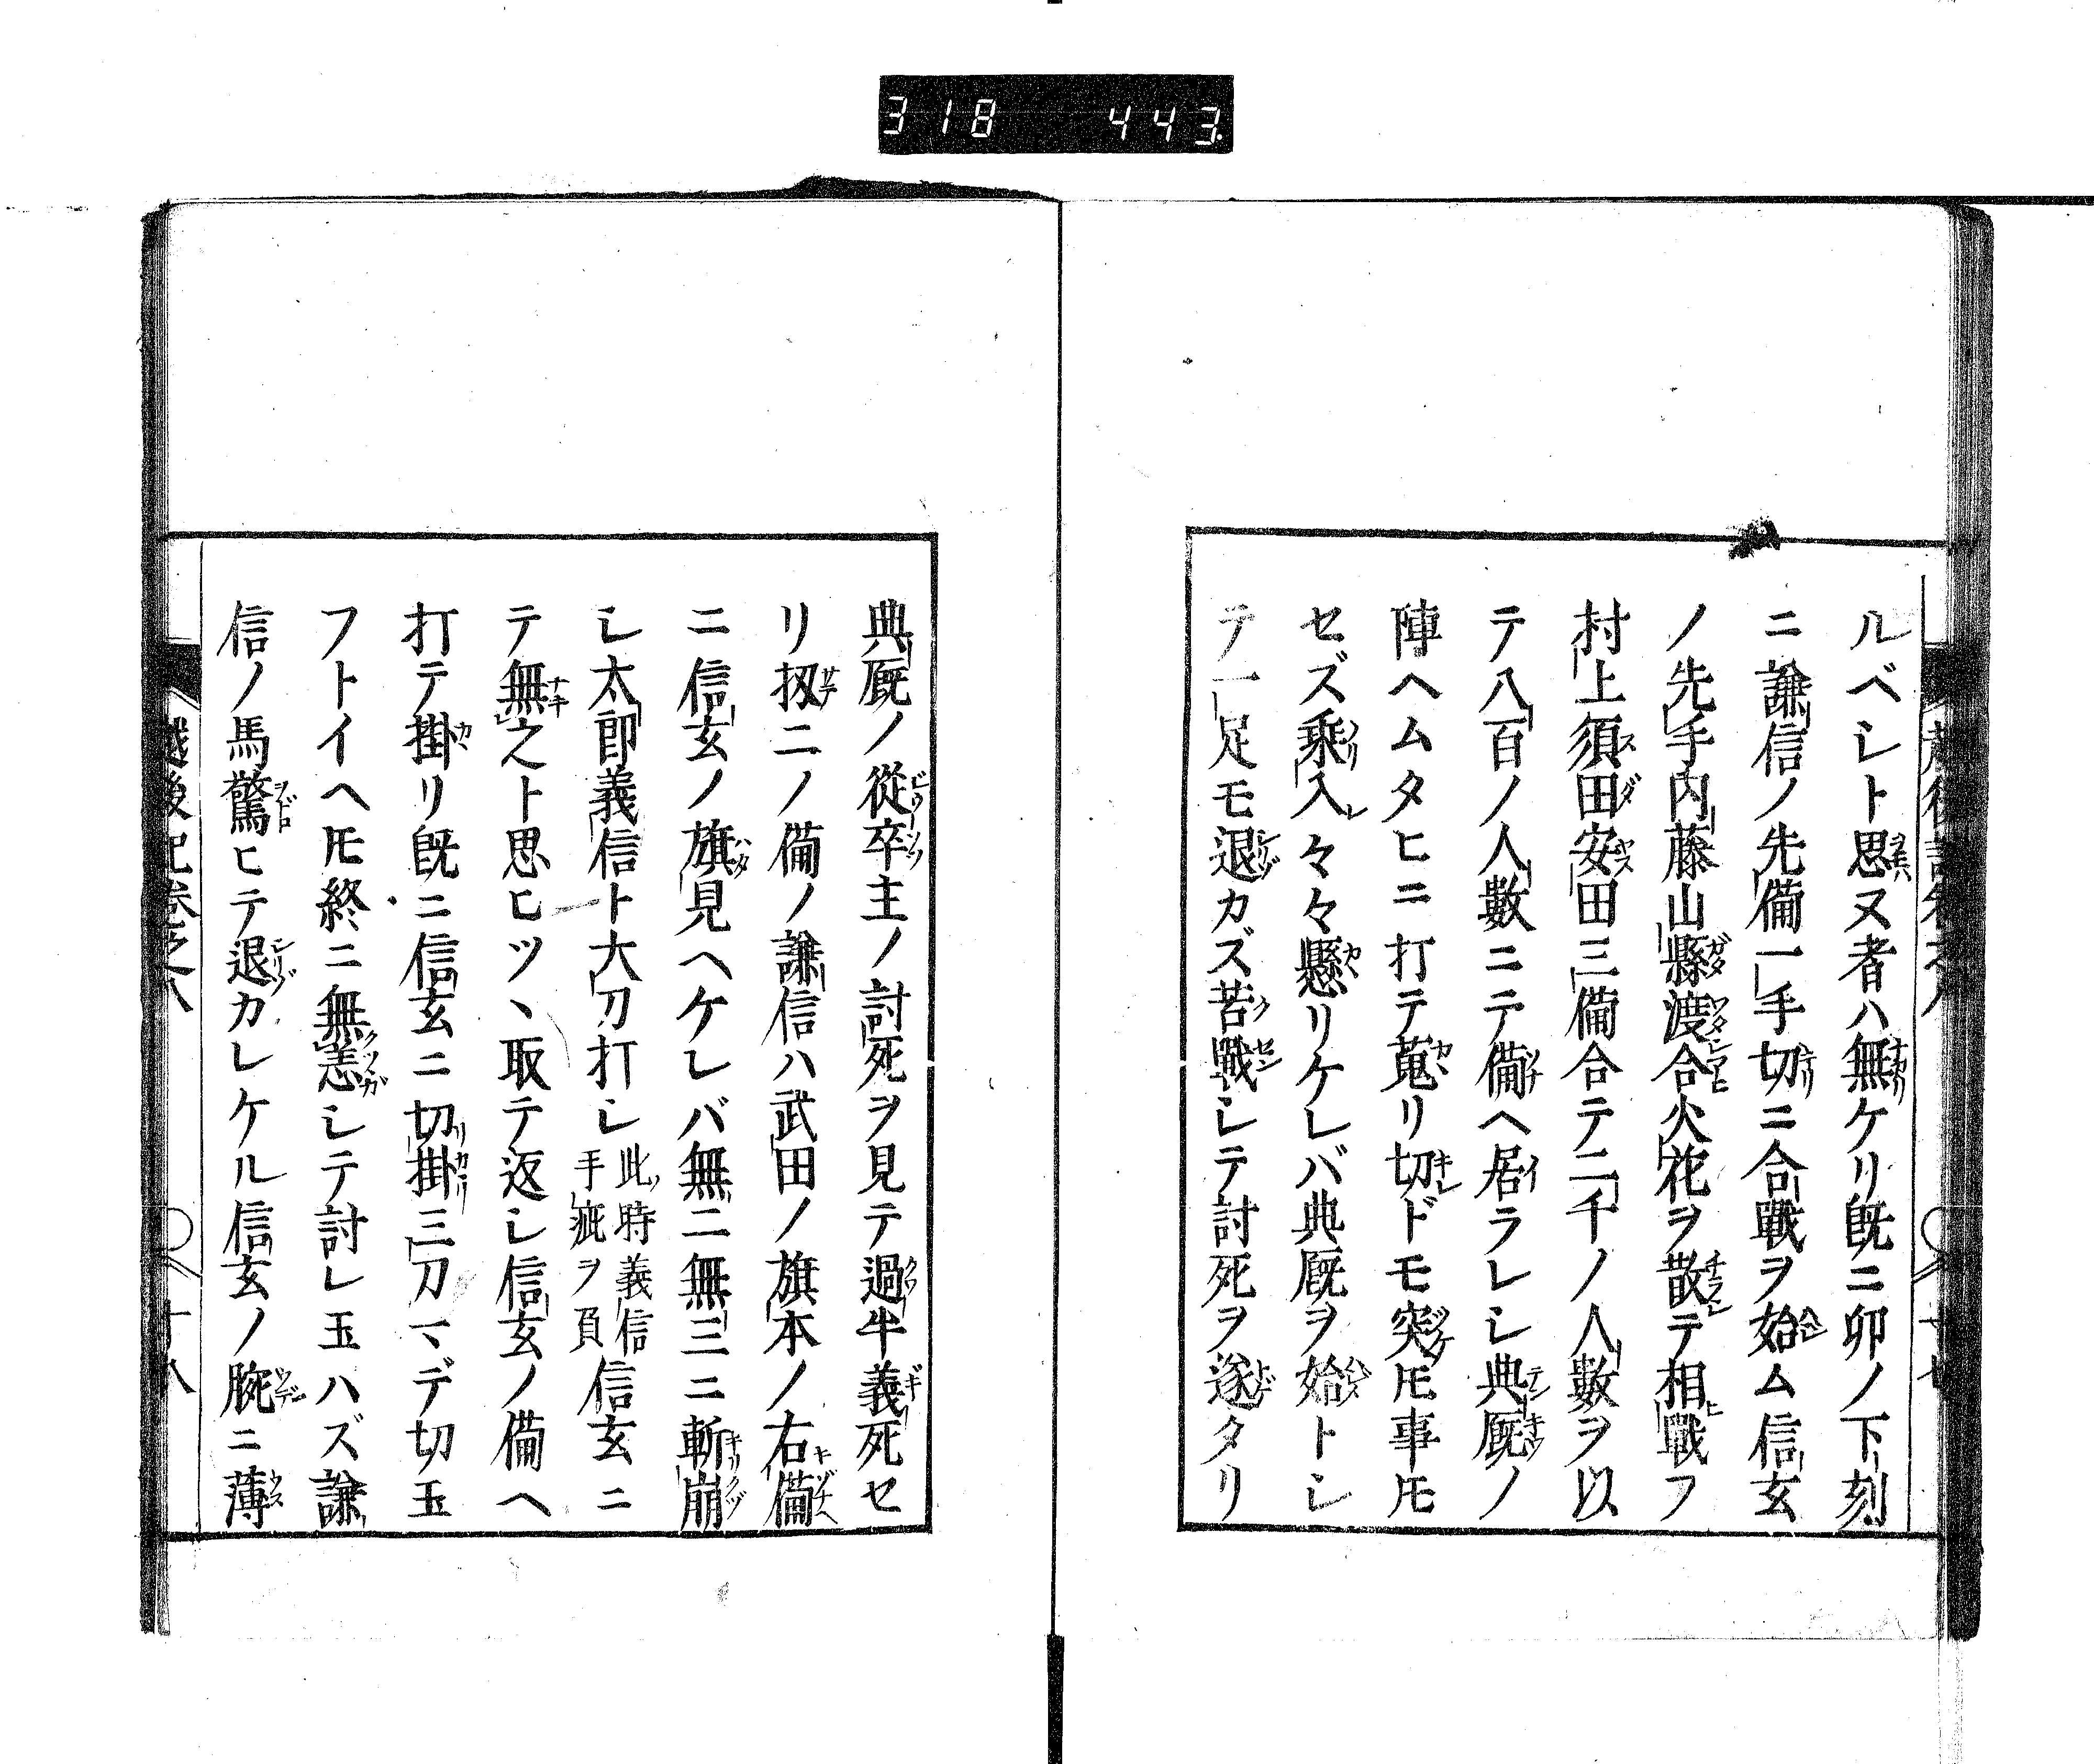 318 443
ルベシト思ヌ者ハ無ケリ既ニ卯ノ下刻
ニ謙信ノ先備一手切ニ合戰ヲ始ム信玄
ノ先手内藤山縣渡合火花ヲ散テ相戰フ
村上須田安田三備合テ二千ノ人數ヲ以
テ八百ノ人數ニテ備ヘ居ラレシ典厩ノ
陣ヘムタヒニ打テ蒐リ切ドモ突ㇳモ事ㇳモ
セズ乘入々々懸リケレバ典厩ヲ始トシ
テ一足モ退カズ苦戰シテ討死ヲ遂タリ
典厩ノ從卒主ノ討死ヲ見テ過半義死セ
リ扨二ノ備ノ謙信ハ武田ノ旗本ノ右備
ニ信玄ノ旗見ヘケレバ無二無三ニ斬崩
シ太郎義信ト大刀打シ此時義信手疵ヲ負信玄ニ
テ無之ト思ヒツヽ取テ返シ信玄ノ備ヘ
打テ掛リ既ニ信玄ニ切掛三刀マデ切玉
フトイヘㇳモ終ニ無恙シテ討レ玉ハズ謙
信ノ馬驚ヒテ退カレケル信玄ノ腕ニ薄
越後記卷之八